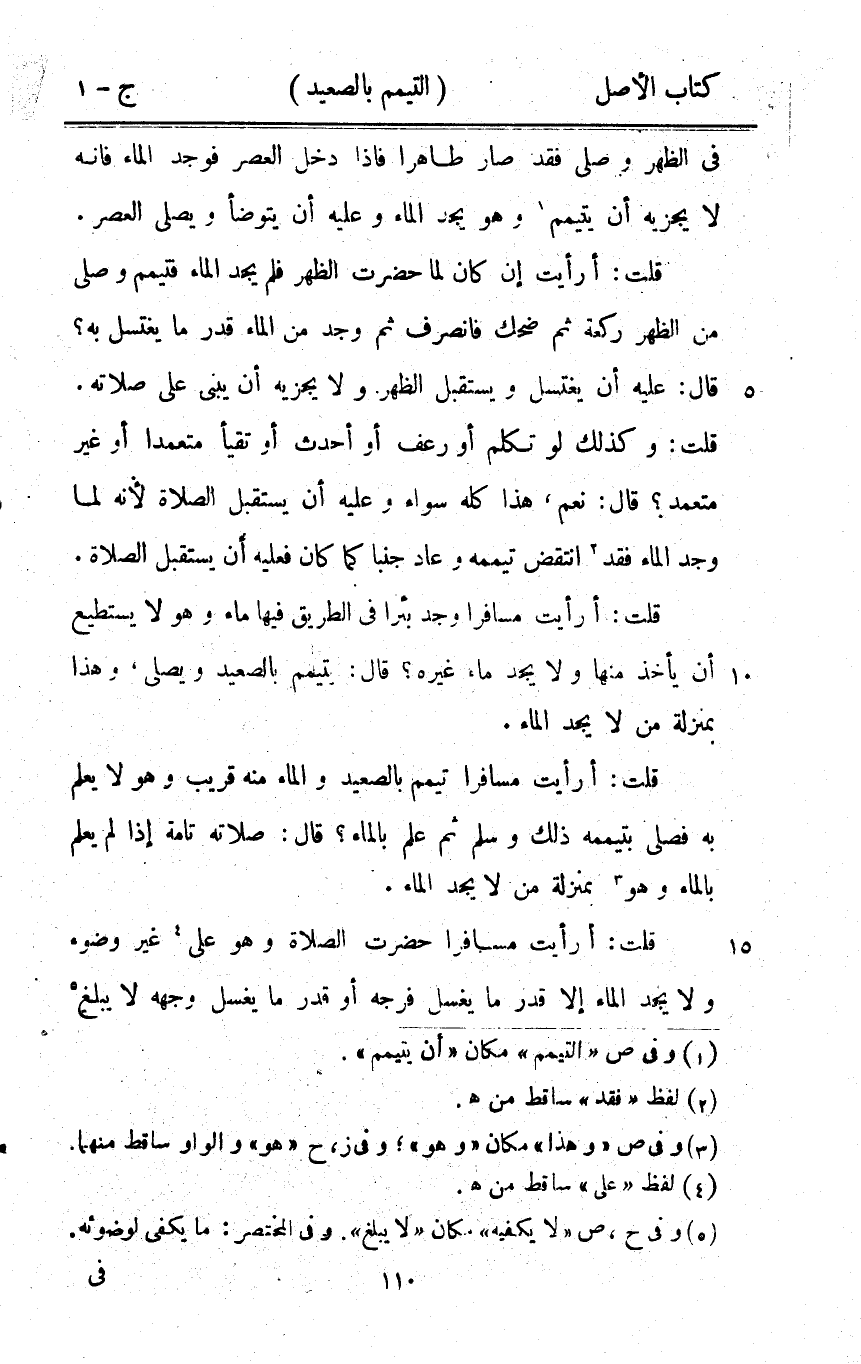 كتاب الأصل ( التيمم بالصعيد ) ج - ١
فى الظهر و صلى فقد صار طاهرا فاذا دخل العصر فوجد الماء فانه
لا يجزيه أن يتيمم١ و هو يجد الماء و عليه أن يتوضأ و يصلى العصر .
قلت : أ رأيت إن كان لما حضرت الظهر فلم يجد الماء فتيمم و صلى
من الظهر ركعة ثم ضحك فانصرف ثم وجد من الماء قدر ما يغتسل به ؟
٥ قال : عليه أن يغتسل و يستقبل الظهر و لا يجزيه أن يبنى على صلاته .
قلت : و كذلك لو تكلم أو رعف أو أحدث أو تقيأ متعمدا أو غير
متعمد ؟ قال : نعم ، هذا كله سواء و عليه أن يستقبل الصلاة لأنه لما
وجد الماء فقد٢ انتقض تيممه و عاد جنبا كما كان فعليه أن يستقبل الصلاة .
قلت : أ رأيت مسافرا وجد بئرا فى الطريق فيها ماء و هو لا يستطيع
١٠ أن يأخذ منها و لا يجد ماء غيره ؟ قال : يتيمم بالصعيد و يصلى ، و هذا
بمنزلة من لا يجد الماء .
قلت : أ رأيت مسافرا تيمم بالصعيد و الماء منه قريب و هو لا يعلم
به فصلى بتيممه ذلك و سلم ثم علم بالماء ؟ قال : صلاته تامة إذا لم يعلم
بالماء و هو٣ بمنزلة من لا يجد الماء .
١٥ قلت : أ رأيت مسافرا حضرت الصلاة و هو على٤ غير وضوء
و لا يجد الماء إلا قدر ما يغسل فرجه أو قدر ما يغسل وجهه لا يبلغ٥
(١) و فى ص « التيمم » مكان « أن يتيمم » .
(٢) لفظ « فقد » ساقط من ه .
(٣) و فى ص « و هذا » مكان « و هو » ؛ و فى ز ، ح « هو » و الواو ساقط منهما .
(٤) لفظ « على » ساقط من ه .
(٥) و فى ح ، ص « لا يكفيه » مكان « لا يبلغ » . و فى المختصر : ما يكفى لوضوئه .
١١٠ فى